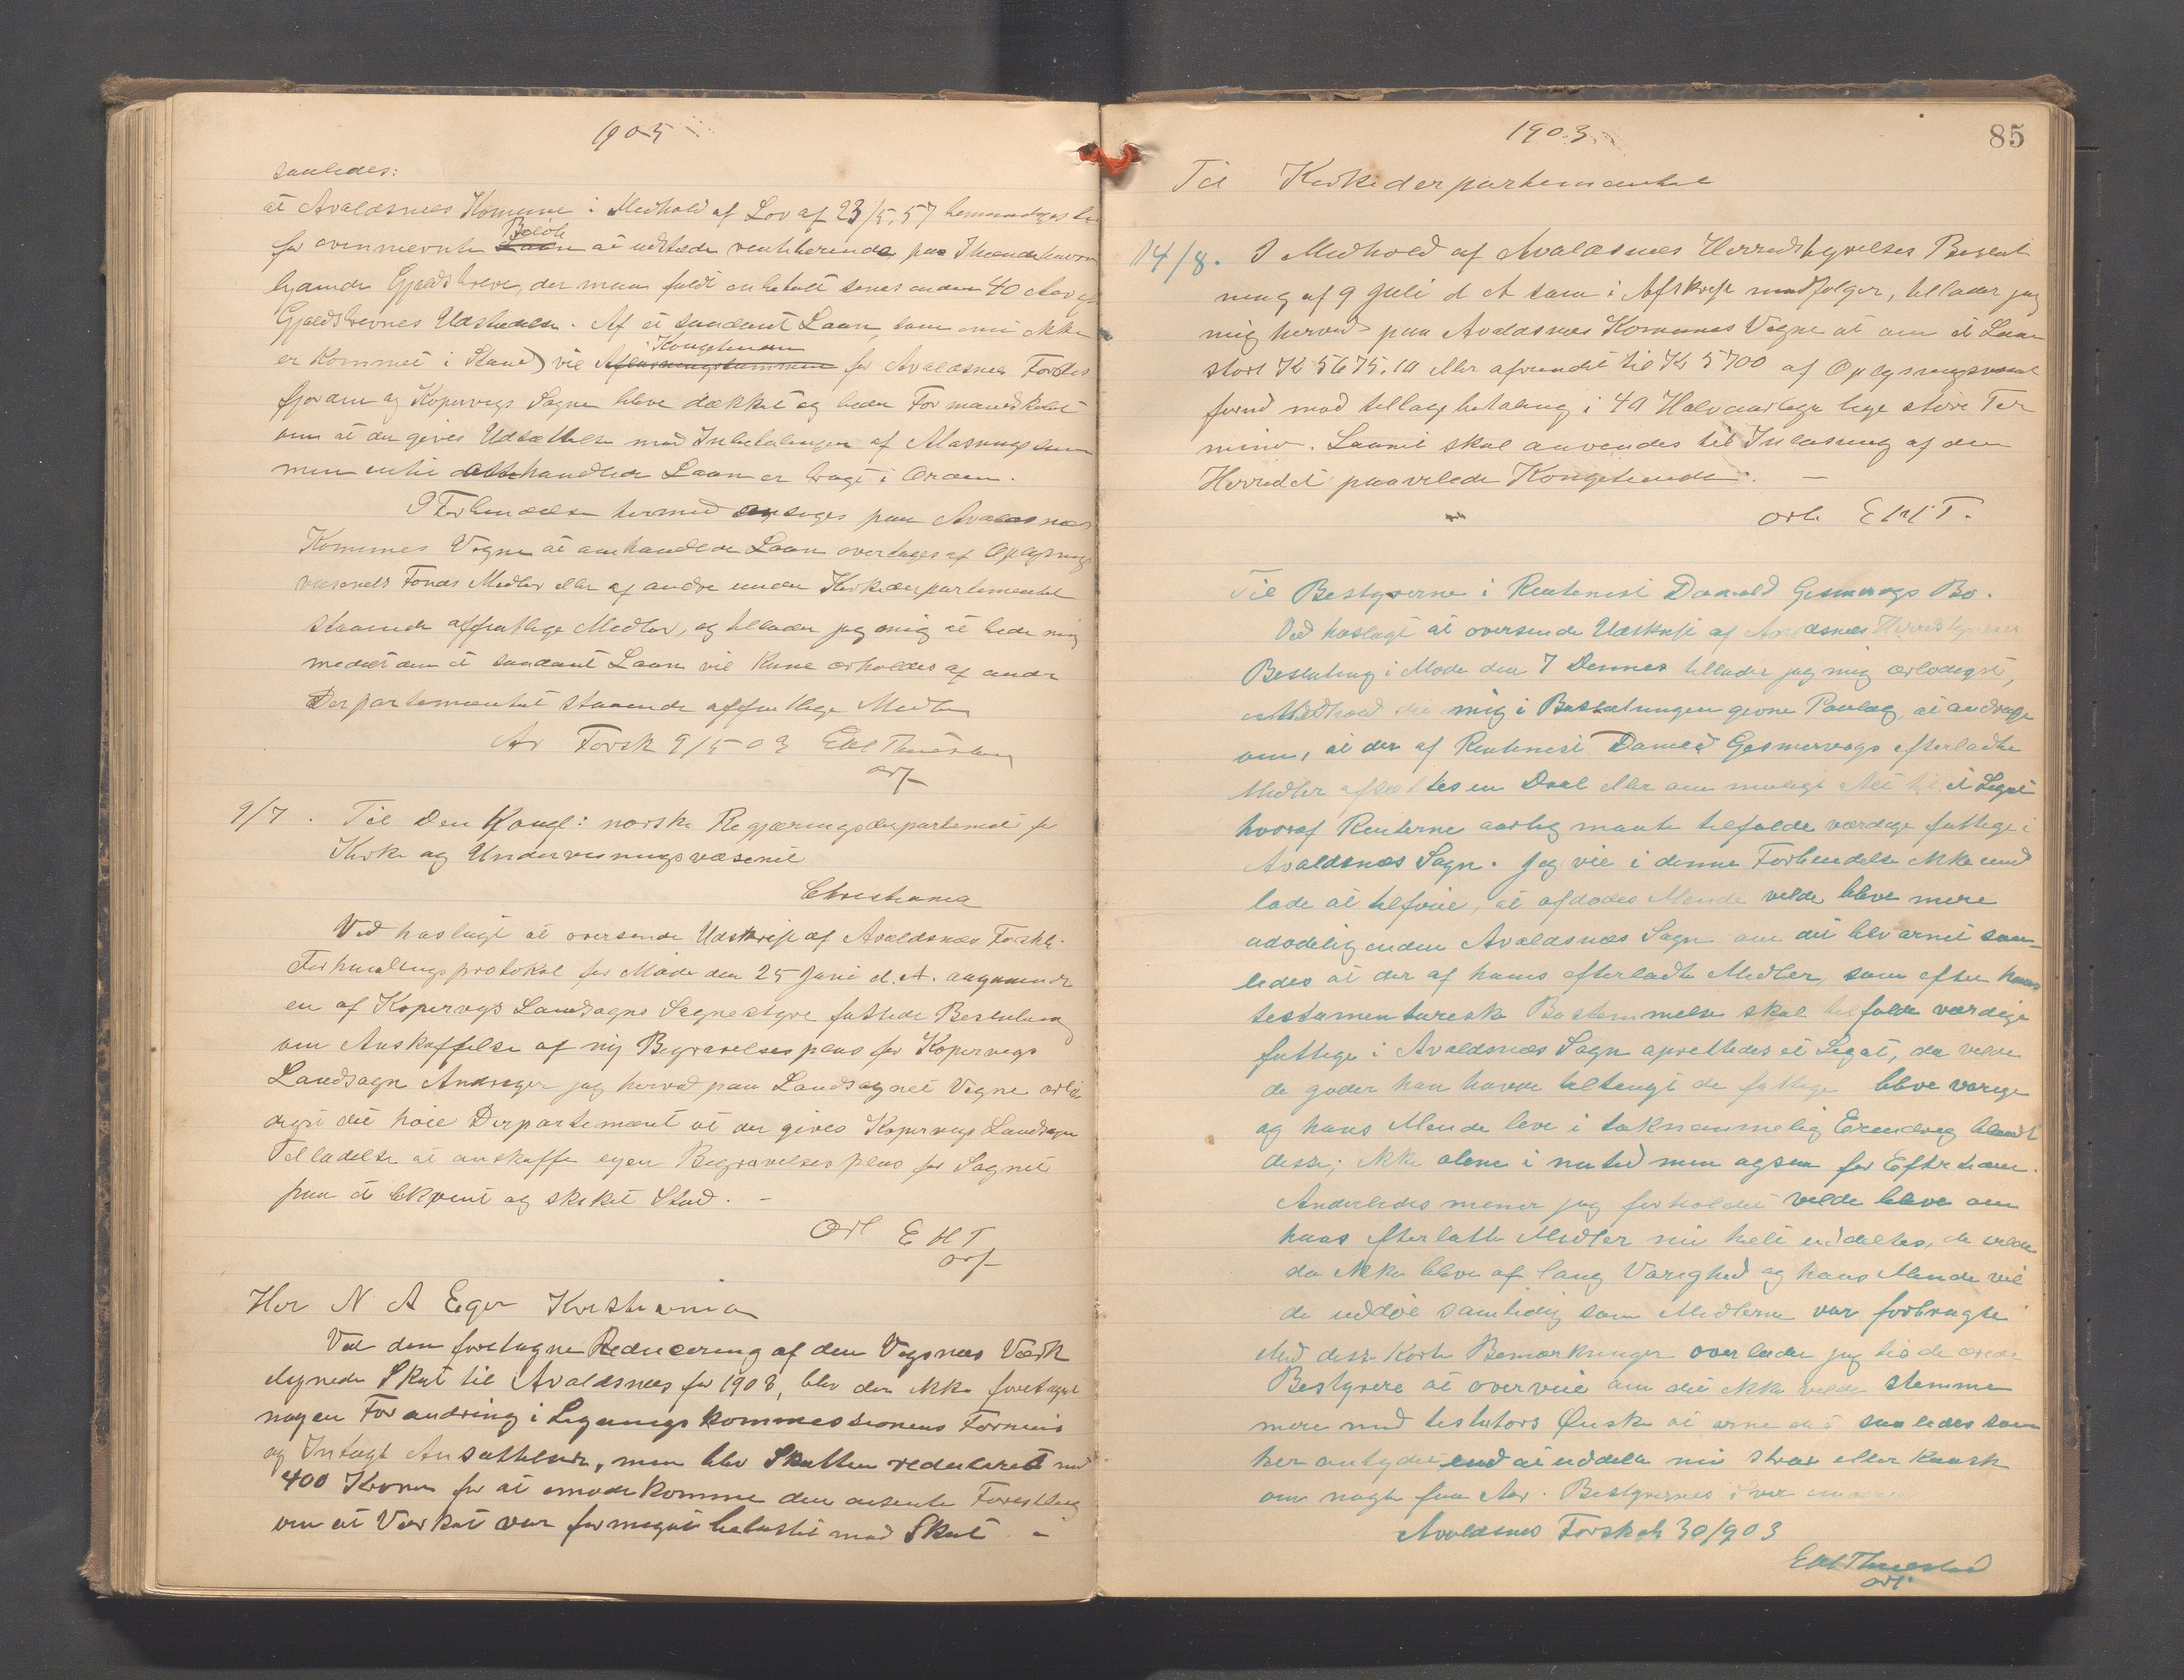 1905
saaledes:
at Avaldsnes Komune i Medhold af Lov af 23/5.57 bemyndiges til
for ovennævnte Beløb Laan at udstæde rentebærende, paa Ihændehaveren
lydende Gjældsbreve, der maa fuldt indbetalt senest inden 40 Aar af
Gjældsbrevnes Udstædelse. Af et saadant Laan, som nu ikke
er kommet i Stand) vil Afløsningssummen Kongetienden for Avaldsnes Fordes
fjorden og Kopervigs Sogne blive dækket og beder Formandskabet
om at der gives Udsættelse med Indbetalingen af Afløsningssum
men indtil omhandlede Laan er bragt i Orden.
I Forbindelse hermed ansøges paa Avaldsnes
Komunes Vegne at omhandlede Laan overtages af Oplysnings
væsenets Fonds Midler eller af andre under Kirkedepartementet
staaende offentlige Midler, og tillader jeg mig at bede mig
meddelt om et saadant Laan vil kune erholdes af andre
Departementet staaende offentlige Midler
Av Forsk 9/5 03 E H Thuestad
ordf
9/7. Til Den Kongl: norske Regjæringsdepartement for
Kirke og Undervisningsvæsenet
Christiania
Ved hoslagt at oversende Udskrift af Avaldsnes Forskb.
Forhandlingsprotokol for Møde den 25 Juni d. A. angaaende
en af Kopervigs Landsogns Sognestyre fattede Beslutning
om Anskaffelse af ny Begravelsesplads for Kopervigs
Landsogn Andrager jeg herved paa Landsognets Vegne ærbø
digst det høie Departement at der gives Kopervigs Landsogn
Tilladelse at anskaffe egen Begravelsesplads for Sognet
paa et bekvemt og skikket Sted. -
Ærb E H T
ordf
Her N A Eger Kristiania
Ved den foretagne Reducering af den Vigsnes Værk
ilignede Skat til Avaldsnes for 1903, blev der ikke foretaget
nogen Forandring i Ligningskommissionens Formues
og Indtægts Ansættelser, men blev Skatten reduceret med
400 Kroner for at imødekomme den ansøgte Forestilling
om at Værket var formeget belastet med Skat. -
1903.
85
Til Kirkederpartementet
14/8. I Medhold af Avaldsnes Herredstyrelses Beslut
ning af 9 Juli d A som i Afskrift medfølger, tillader jeg
mig herved paa Avaldsnes Komunes Vegne at om et Laan
stort K 5675.10 eller afrundet til Kr 5700 af Oplysningsvæsnets
fond mod tilbagebetaling i 40 Halvaarlige lige store Ter
miner. Laanet skal anvendes til Indløsning af den
Herredet paahvilede Kongetiende. -
ærb E H T.
Til Bestyrerne i Rentenist Daniel Gesmervigs Bo.
Ved hoslagt at oversende Udskrift af Avaldsnes Herredstyrelses
Beslutning i Møde den 7 Dennes tillader jeg mig ærbødigst,
i Medhold det mig i Beslutningen givne Paalæg, at andrage
om, at der af Rentenist Daniel Gesmervigs efterladte
Midler afsættes en Deel eller om muligt Alt til et Legat
hvoraf Renterne aarlig maatte tilfalde værdige fattige i
Avaldsnes Sogn. Jeg vil i denne Forbindelse ikke und
lade at tilføie, at afdødes Minde vilde blive mere
udødelig inden Avaldsnes Sogn om det blev ordnet saa-
ledes at der af hans efterladte Midler, som efter hans
testamentariske Bestemmelse skal tilfalde værdige
fattige i Avaldsnes Sogn oprettedes et Legat, da vilde
de goder han havde tiltængt de fattige blive varige
og hans Minde leve i taknemmelig Erindring blandt
disse; ikke alene i nutid men ogsaa for Eftertiden.
Anderledes mener jeg forholdet vilde blive om
hans efterlatte Midler nu helt uddeltes, de vilde
da ikke blive af lang Varighed og hans Minde vil
da uddø samtidig som Midlerne var forbrugte
Med disse korte Bemærkninger overlader jeg til de ærede
Bestyrere at overveie om det ikke vilde stemme
mere med testators Ønske at ordne det saaledes som
her antydet end at uddele nu strax eller kanske
om nogle faa Aar. Bestyrernes
Avaldsnes Forskab 30/9 03
E H Thuestad
ordf.